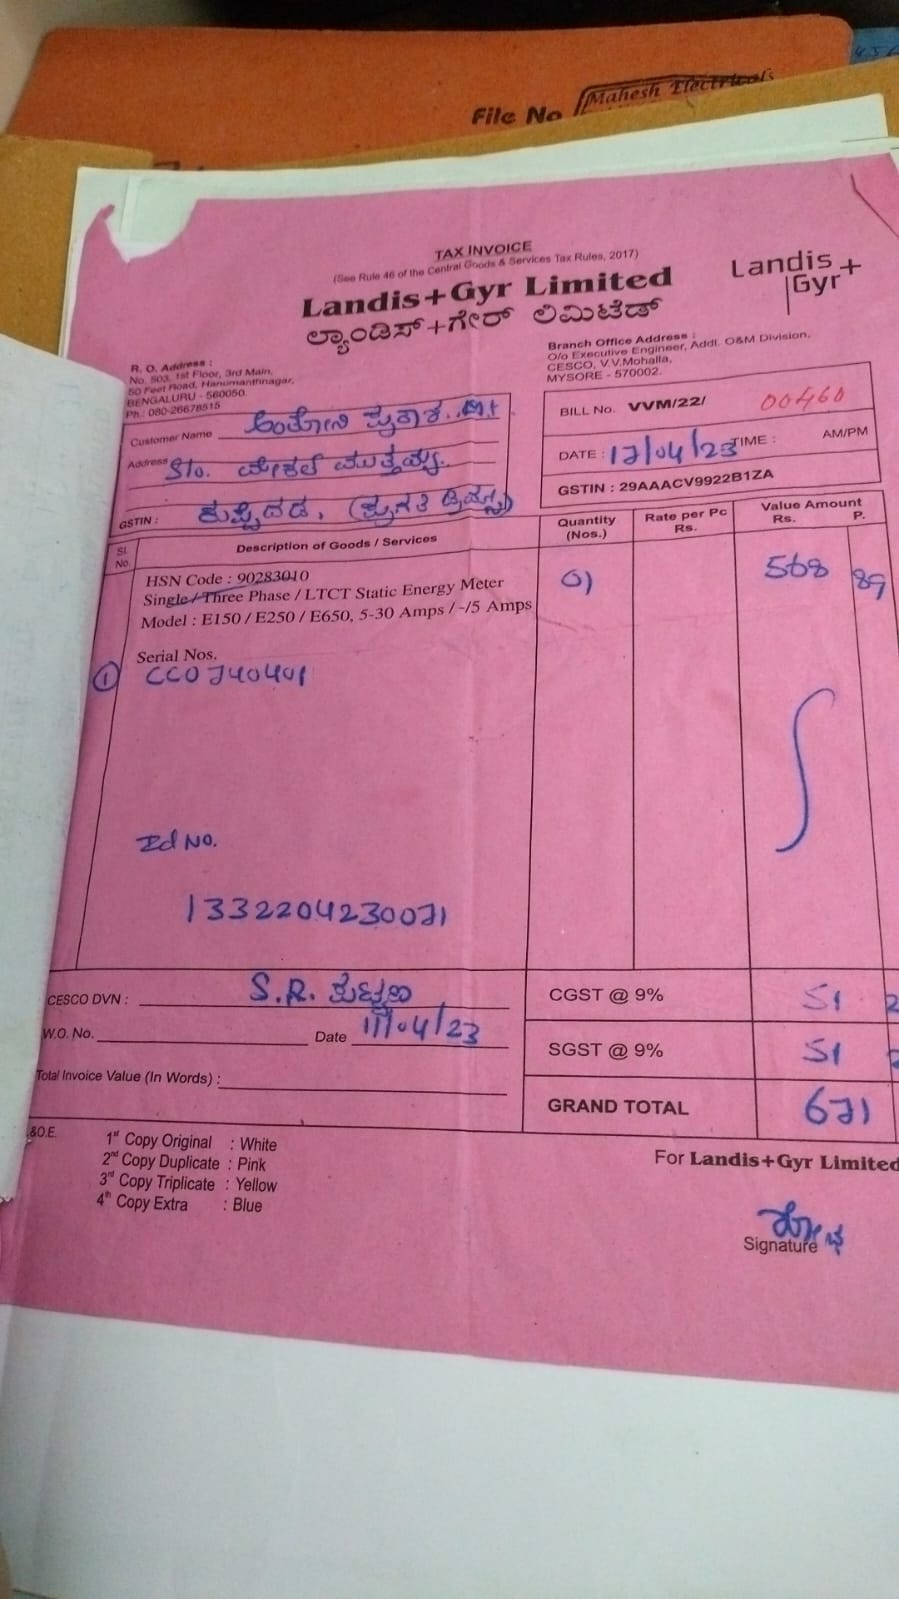 456
File No
Mahesh Electricals
TAX INVOICE
(See Rule 46 of the Central Goods & Services Tax Rules, 2017)
Landis+Gyr Limited
ಲ್ಯಾಂಡಿಸ್+ಗೇರ್ ಲಿಮಿಟೆಡ್
Landis
Gyr+
R. O. Address :
No. 503, 1st Floor, 3rd Main,
50 Feet Road, Hanumanthnagar,
BENGALURU - 560050.
Ph.: 080-26678515
Branch Office Address :
O/o Executive Engineer, Addl. O&M Division,
CESCO, V.V.Mohalla,
MYSORE - 570002.
Customer Name ಅಂತೋಣಿ ಪ್ರಕಾಶ.
Address S/o. ಮೇಕಲ್ ಮುತ್ತಯ್ಯ.
GSTIN :
BILL No. VVM/22/ 00460
DATE : 17/04/23 TIME : AM/PM
GSTIN : 29AAACV9922B1ZA
Sl. No. Description of Goods / Services Quantity (Nos.) Rate per Pc Rs. Value Amount Rs. P.
HSN Code : 90283010
Single / Three Phase / LTCT Static Energy Meter 01 568 89
Model : E150 / E250 / E650, 5-30 Amps / -/5 Amps
Serial Nos.
1 CC0740401
Id No.
1332204230071
CESCO DVN : S.R.
W.O. No. Date 11/04/23
Total Invoice Value (In Words) :
CGST @ 9% 51 2
SGST @ 9% 51 2
GRAND TOTAL 671
&O.E.
1st Copy Original : White
2nd Copy Duplicate : Pink
3rd Copy Triplicate : Yellow
4th Copy Extra : Blue
For Landis+Gyr Limited
Signature